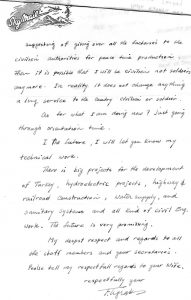 suggesting of giving over all the factories to the
civilian authorities for peace time production.
Then it is possible that I will be civilian not soldier
anymore. In reality it does not change anything
is long service to the country civilian or soldier.
As for what I am doing now? Just going
through orientation time.
I the future, I will let you know my
technical work.
There is big projects for the development
of Turkey, hydroelectric projects, highway &
railroad construction, water supply, and
sanitary systems and all kind of civil Eng.
work. The future is very promising.
My deepest respect and regards to all
the staff members and your secretaries.
Please tell my respectfull regards to your Wife.
respectfully yours